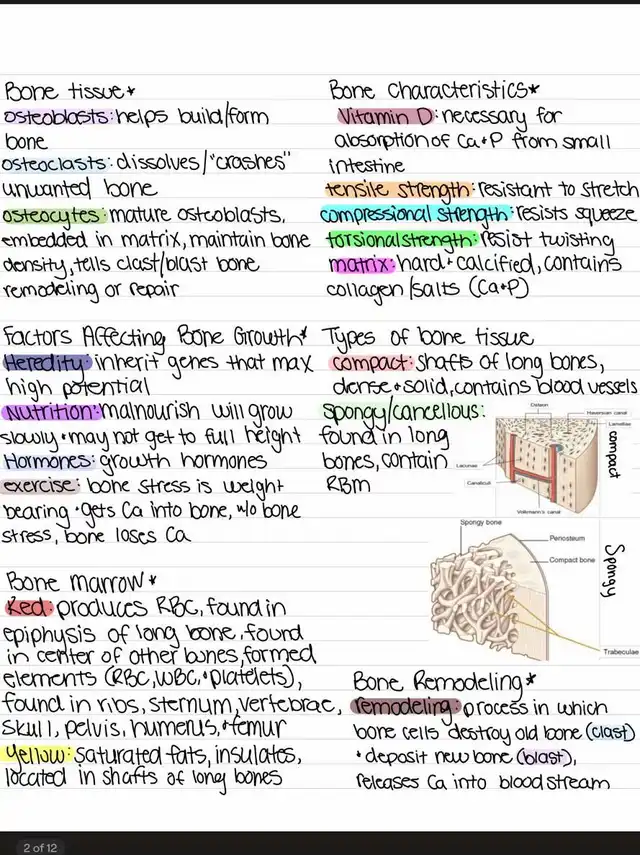 Bone tissue*
osteoblasts: helps build/form
bone
osteoclasts: dissolves/"crashes"
unwanted bone
osteocytes: mature osteoblasts,
embedded in matrix, maintain bone
density, tells clast/blast bone
remodeling or repair
Factors Affecting Bone Growth*
Heredity: inherit genes that max
high potential
Nutrition: malnourish will grow
slowly + may not get to full height
Hormones: growth hormones
exercise: bone stress is weight
bearing + gets Ca into bone, w/o bone
stress, bone loses Ca
Bone marrow*
Red: produces RBC, found in
epiphysis of long bone, found
in center of other bones, formed
elements (RBC, WBC, + platelets),
found in ribs, sternum, vertebrae,
skull, pelvis, humerus, + femur
Yellow: saturated fats, insulates,
located in shafts of long bones
Bone Characteristics*
Vitamin D: necessary for
absorption of Ca + P from small
intestine
tensile strength: resistant to stretch
compressional strength: resists squeeze
torsional strength: resist twisting
matrix: hard + calcified, contains
collagen/salts (Ca+P)
Types of bone tissue
compact: shafts of long bones,
dense + solid, contains blood vessels
spongy/cancellous:
found in long
bones, contain
RBM
Osteon
Haversian canal
Lamellae
Lacunae
Canaliculi
Volkmann's canal
compact
Spongy bone
Periosteum
Compact bone
Trabeculae
Spongy
Bone Remodeling*
remodeling: process in which
bone cells destroy old bone (clast)
+ deposit new bone (blast),
releases Ca into blood stream
2 of 12